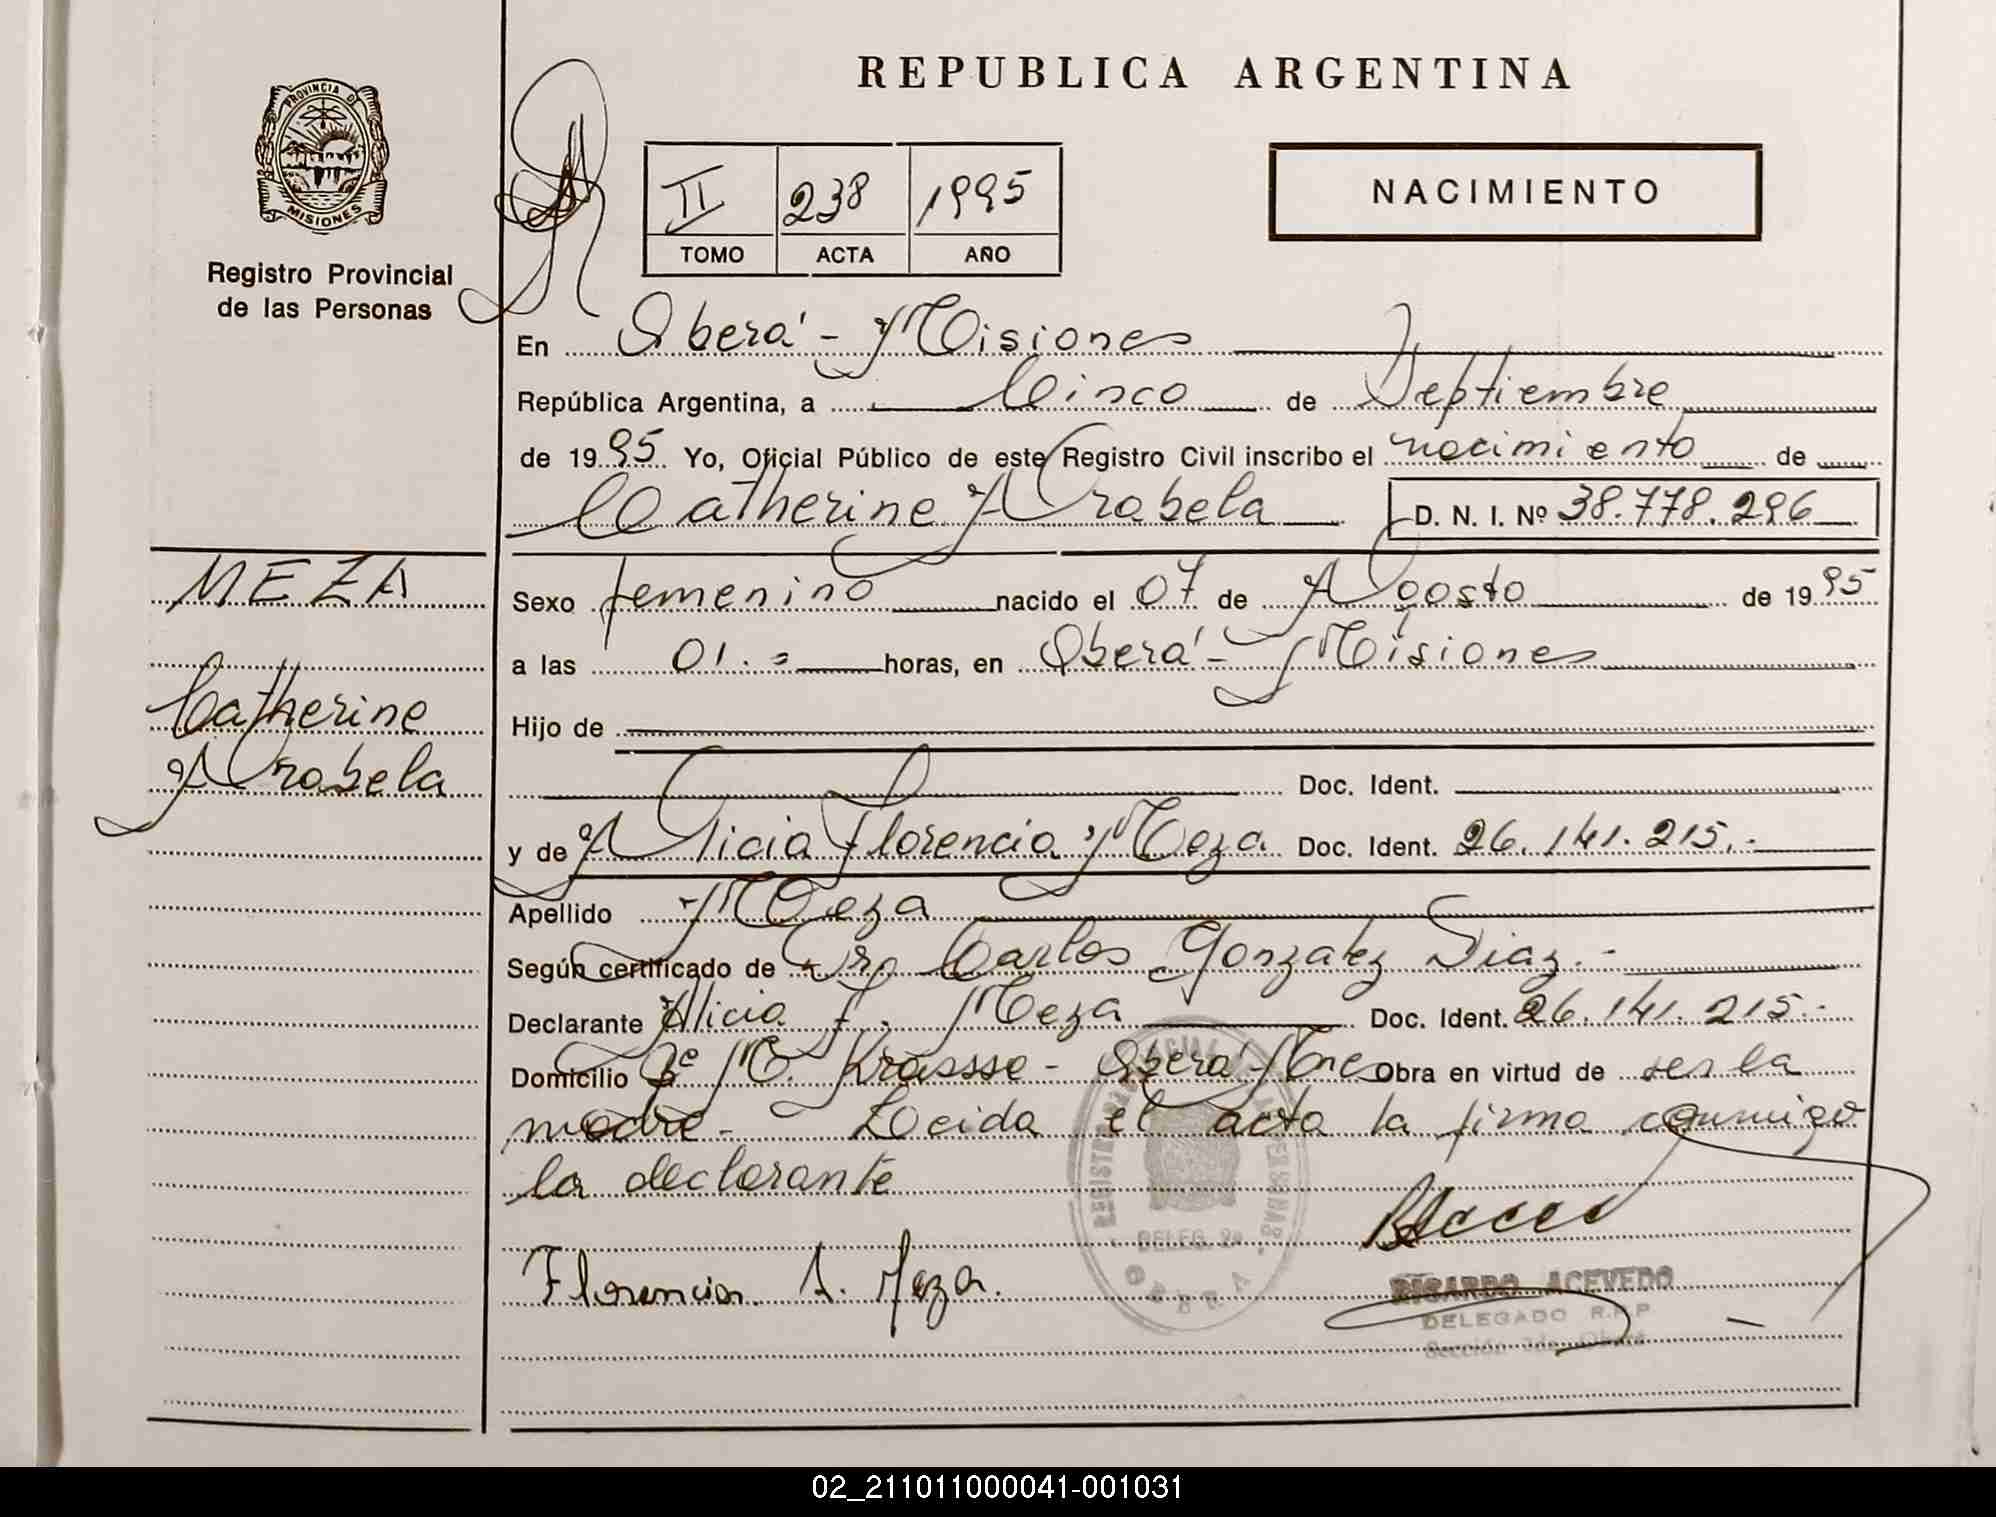 REPUBLICA ARGENTINA
PROVINCIA D
MISIONES
Registro Provincial
de las Personas
II 238 1995
TOMO ACTA AÑO
NACIMIENTO
En Oberá - Misiones
República Argentina, a Cinco de Septiembre
de 1995 Yo, Oficial Público de este Registro Civil inscribo el nacimiento de
Catherine Arabela D. N. I. Nº 38.778.296
MEZA
Catherine
Arabela
Sexo femenino nacido el 07 de Agosto de 1995
a las 01. horas, en Oberá - Misiones
Hijo de
Doc. Ident.
y de Alicia Florencia Meza Doc. Ident. 26.141.215.-
Apellido Meza
Según certificado de Dro Carlos Gonzalez Diaz.-
Declarante Alicia F. Meza Doc. Ident. 26.141.215.-
Domicilio M. Krassse - Oberá - Mnes Obra en virtud de ser la
madre - Leida el acta la firma conmigo
la declarante
Florencia A. Meza.
DELEG. 2ª
RICARDO ACEVEDO
DELEGADO R.P.P
Sección 2da. Oberá
02_211011000041-001031